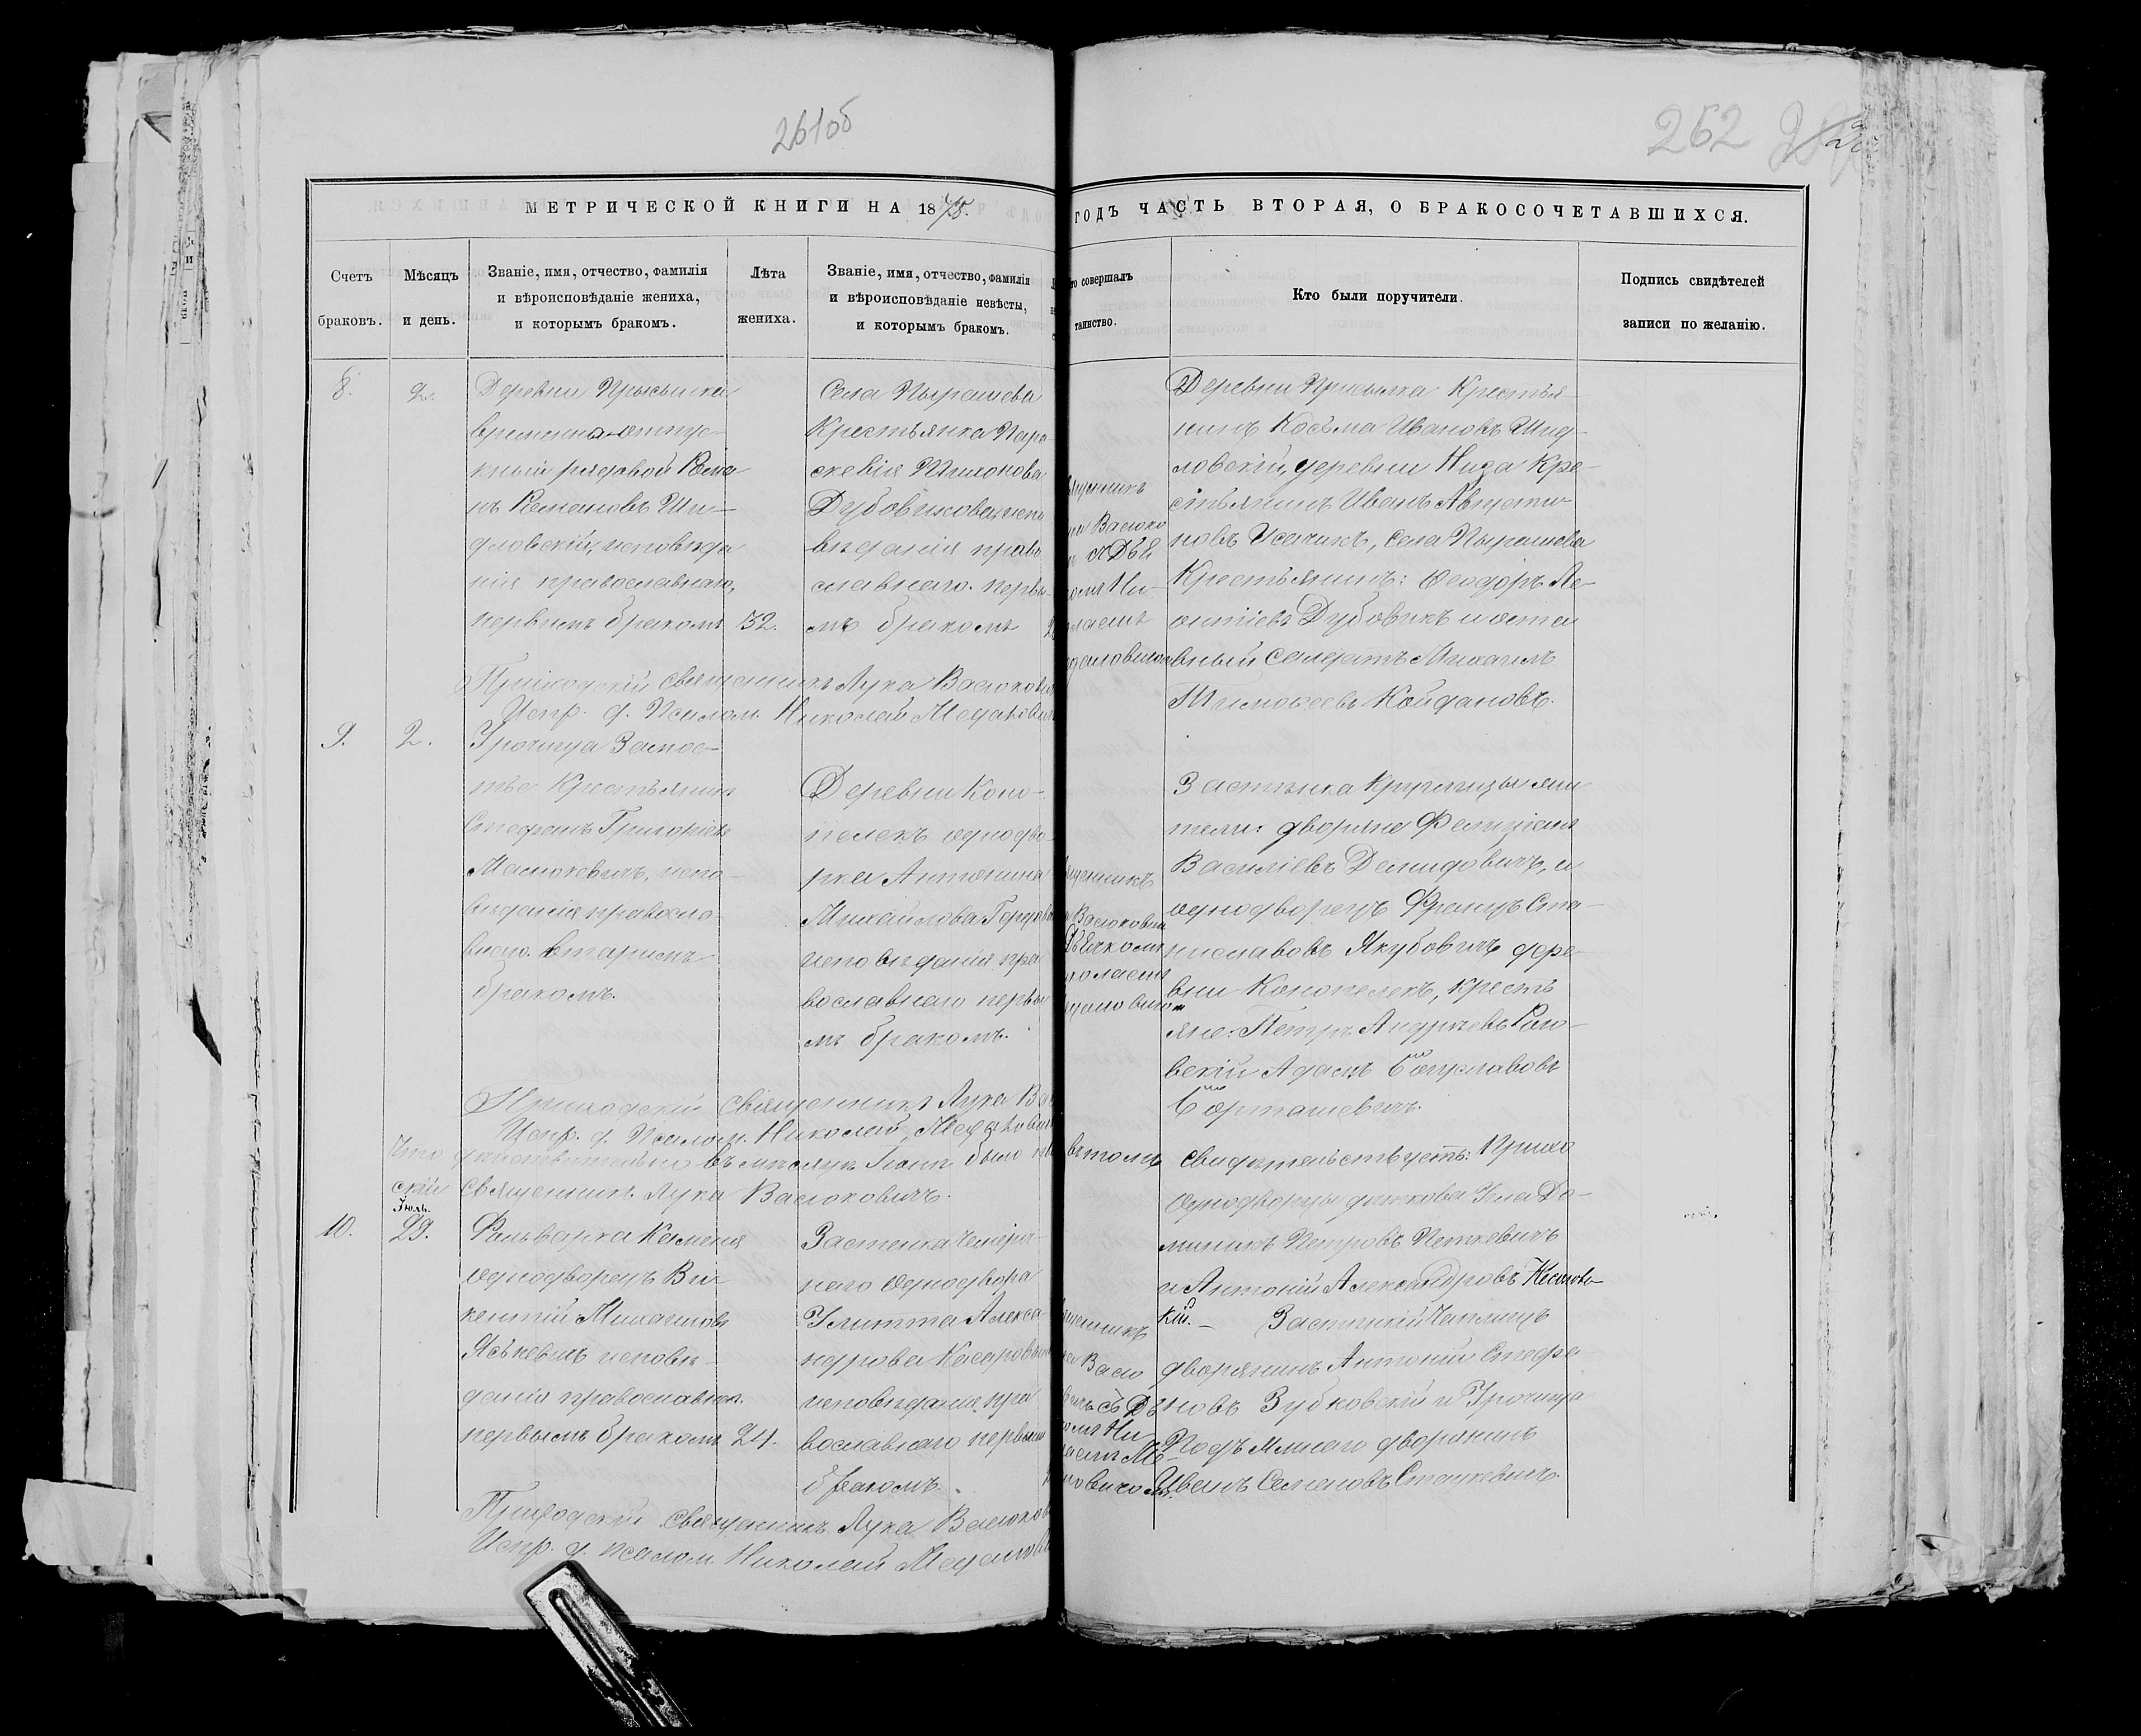 261об
252
МЕТРИЧЕСКОЙ КНИГИ НА 1875.
ГОДЪ ЧАСТЬ ВТОРАЯ, О БРАКОСОЧЕТАВШИХСЯ.
Счетъ
браковъ.
Мѣсяцъ
и день.
Званіе, имя, отчество, фамилія
и вѣроисповѣданіе жениха,
и которымъ бракомъ.
Лѣта
жениха.
Званіе, имя, отчество, фамилія
и вѣроисповѣданіе невѣсты,
и которымъ бракомъ.
то совершалъ
таинство.
Кто были поручители.
Подпись свидѣтелей
записи по желанію.
8.
2.
Деревни Присынка
временно-отпус-
кный рядовой Рома
нъ Романовъ Ши-
дловскій, исповѣда
нія православнаго,
первымъ бракомъ
32.
Села Пырашева
Крестьянка Пара-
скевія Тихонова
Дубовикова, испо
вѣданія право
славнаго. первы-
мъ бракомъ
ященникъ
Васюко
съ Дья
комъ Ни-
колаемъ
Деревни Присынка Крестья-
нинъ Косьма Ивановъ Шид-
ловскій, деревни Низа Кре-
стьянинъ Иванъ Августи-
новъ Усачикъ, села Пырашева
Крестьянинъ: Ѳеодоръ Ле-
онтіевъ Дубовикъ и отста
вный солдатъ Михаилъ
Тимоѳеевъ Койдановъ.
Приходскій священникъ Лука Васюкович
Испр. д. Псалом. Николай
9.
2.
Урочища Замос-
тье Крестьянинъ
Стефанъ Григоріевъ
Масюкевичъ, испо-
вѣданія правосла-
внаго. вторымъ
бракомъ.
Деревни Коно-
пелекъ однодво-
рка Антонина
Михайлова
исповѣданія пра
вославнаго первы
мъ бракомъ.
щенникъ
Васюкович
Дьячкомъ
колаемъ
Застѣнка Кругмицы жи
тели: дворяне Фелиціянъ
Василіевъ Демидовичъ, и
однодворецъ Францъ Ста-
ниславовъ Якубовичъ дере-
вни Конопелекъ, кресть
яне: Петръ Андреевъ
вскій Адамъ Богуславовъ
Борташевичъ.
Приходскій священникъ Лука Ва
Испр. д. Псалом. Николай
Что дѣйствительно въ мѣсяцѣ Іюнѣ было
въ томъ свидѣтельствуетъ: Прихо
скій священникъ Лука Васюковичъ.
Іюль.
10.
29.
Фольварка Каменя
однодворецъ Ви-
кентій Михаиловъ
Яськевичъ исповѣ-
данія православнаго.
первымъ бракомъ
24.
Застенка
наго однодворка
Улитта Алекса-
ндрова
исповѣданія пра
вославнаго первымъ
бракомъ.
ященникъ
Васю
вичъ съ Дь
комъ Ни
Однодворцы До-
миникъ Петровъ Петкевичъ
и Антоній Александровъ
кій. – Застѣнки
дворянинъ Антоній Стефа
новъ Зубковскій и Урочища
дворянинъ
Иванъ Семеновъ Стацкевичъ.
Приходскій священникъ Лука Васюков
Испр. д. псалом Николай